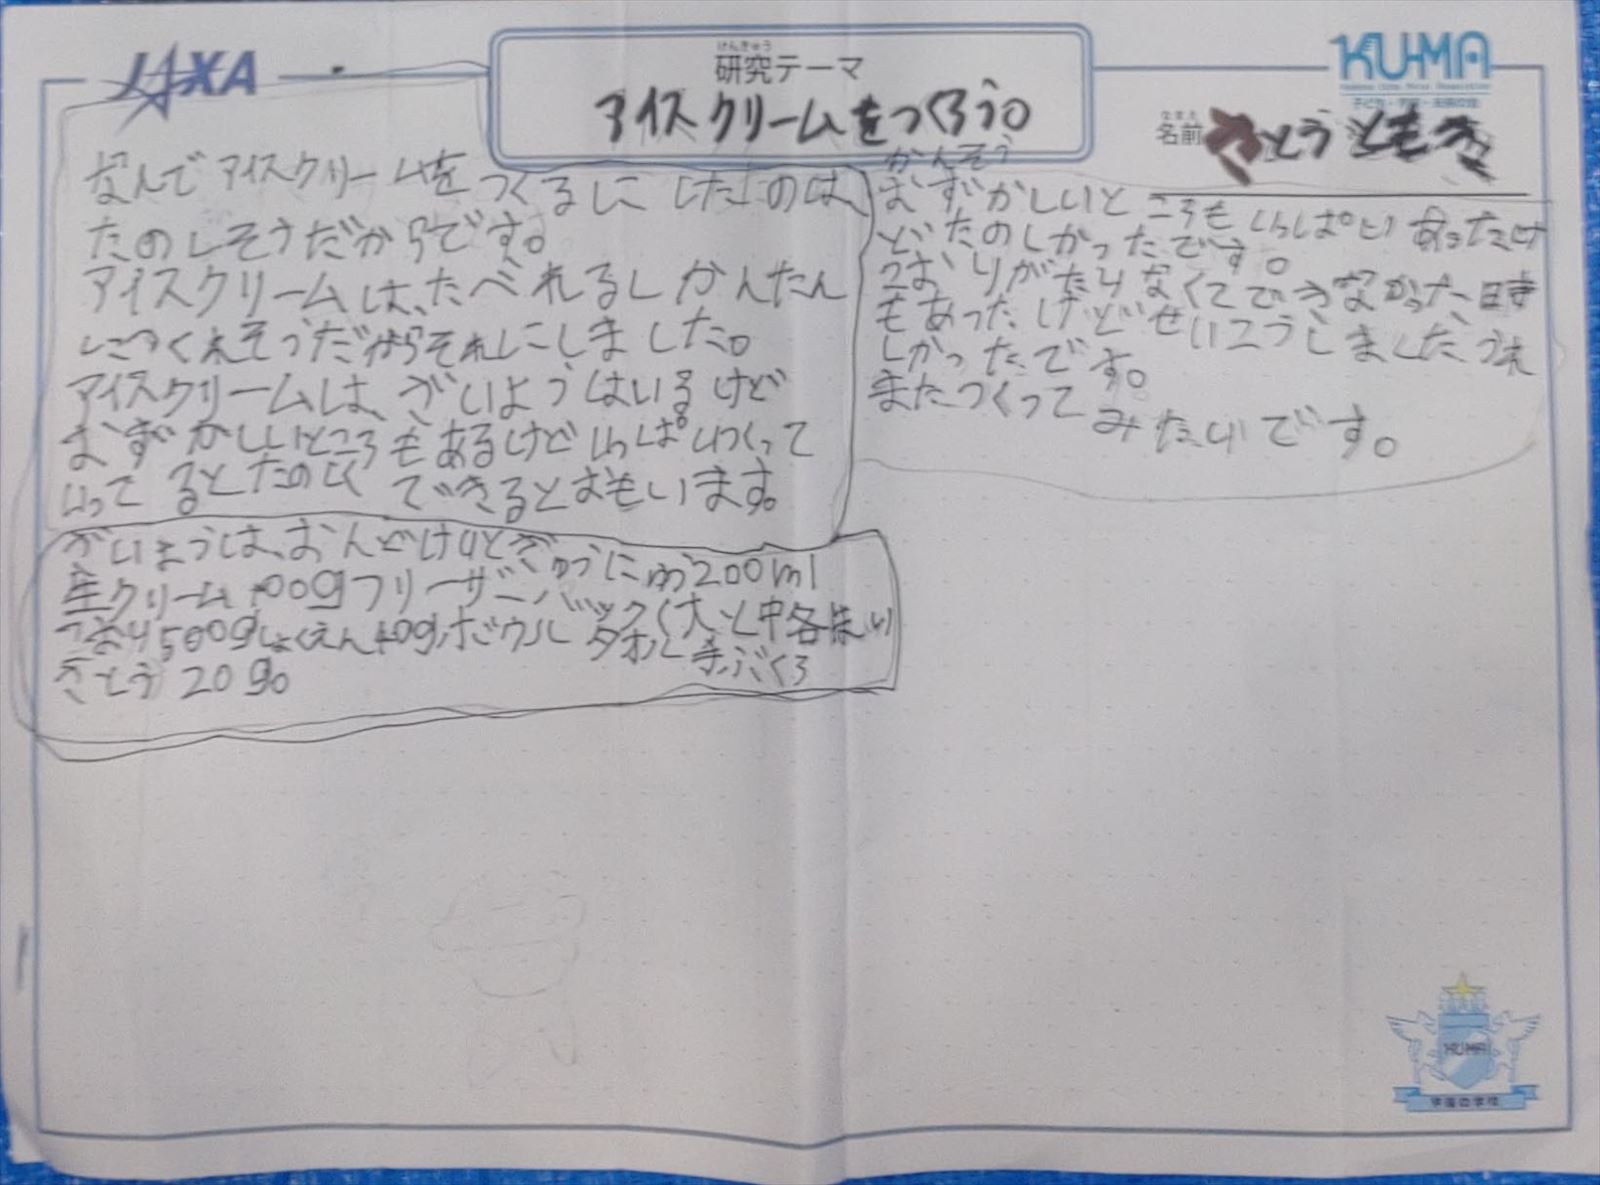 JAXA
けんきゅう
研究テーマ
アイスクリームをつくろう。
KU-MA
子ども・宇宙・未来の会
なまえ
名前 さとう ともき
なんでアイスクリームをつくるにしたのは、
たのしそうだからです。
アイスクリームは、たべれるしかんたん
につくえそうだからそれにしました。
アイスクリームは、ざいようはいるけど
むずかしいところもあるけどいっぱいつくって
いってるとたのしくできるとおもいます。
ざいようは、おんどけいとぎゅうにゅう200ml
生クリーム100gフリーザーバック(大と中各
こおり500gしょくえん40gボウル タオル 手ぶくろ
さとう20g。
かんそう
むずかしいところもいっぱいあったけ
どたのしかったです。
こおりがたりなくてできなかった時
もあったけどせいこうしましたうれ
しかったです。
またつくってみたいです。
KU-MA
宇宙の学校